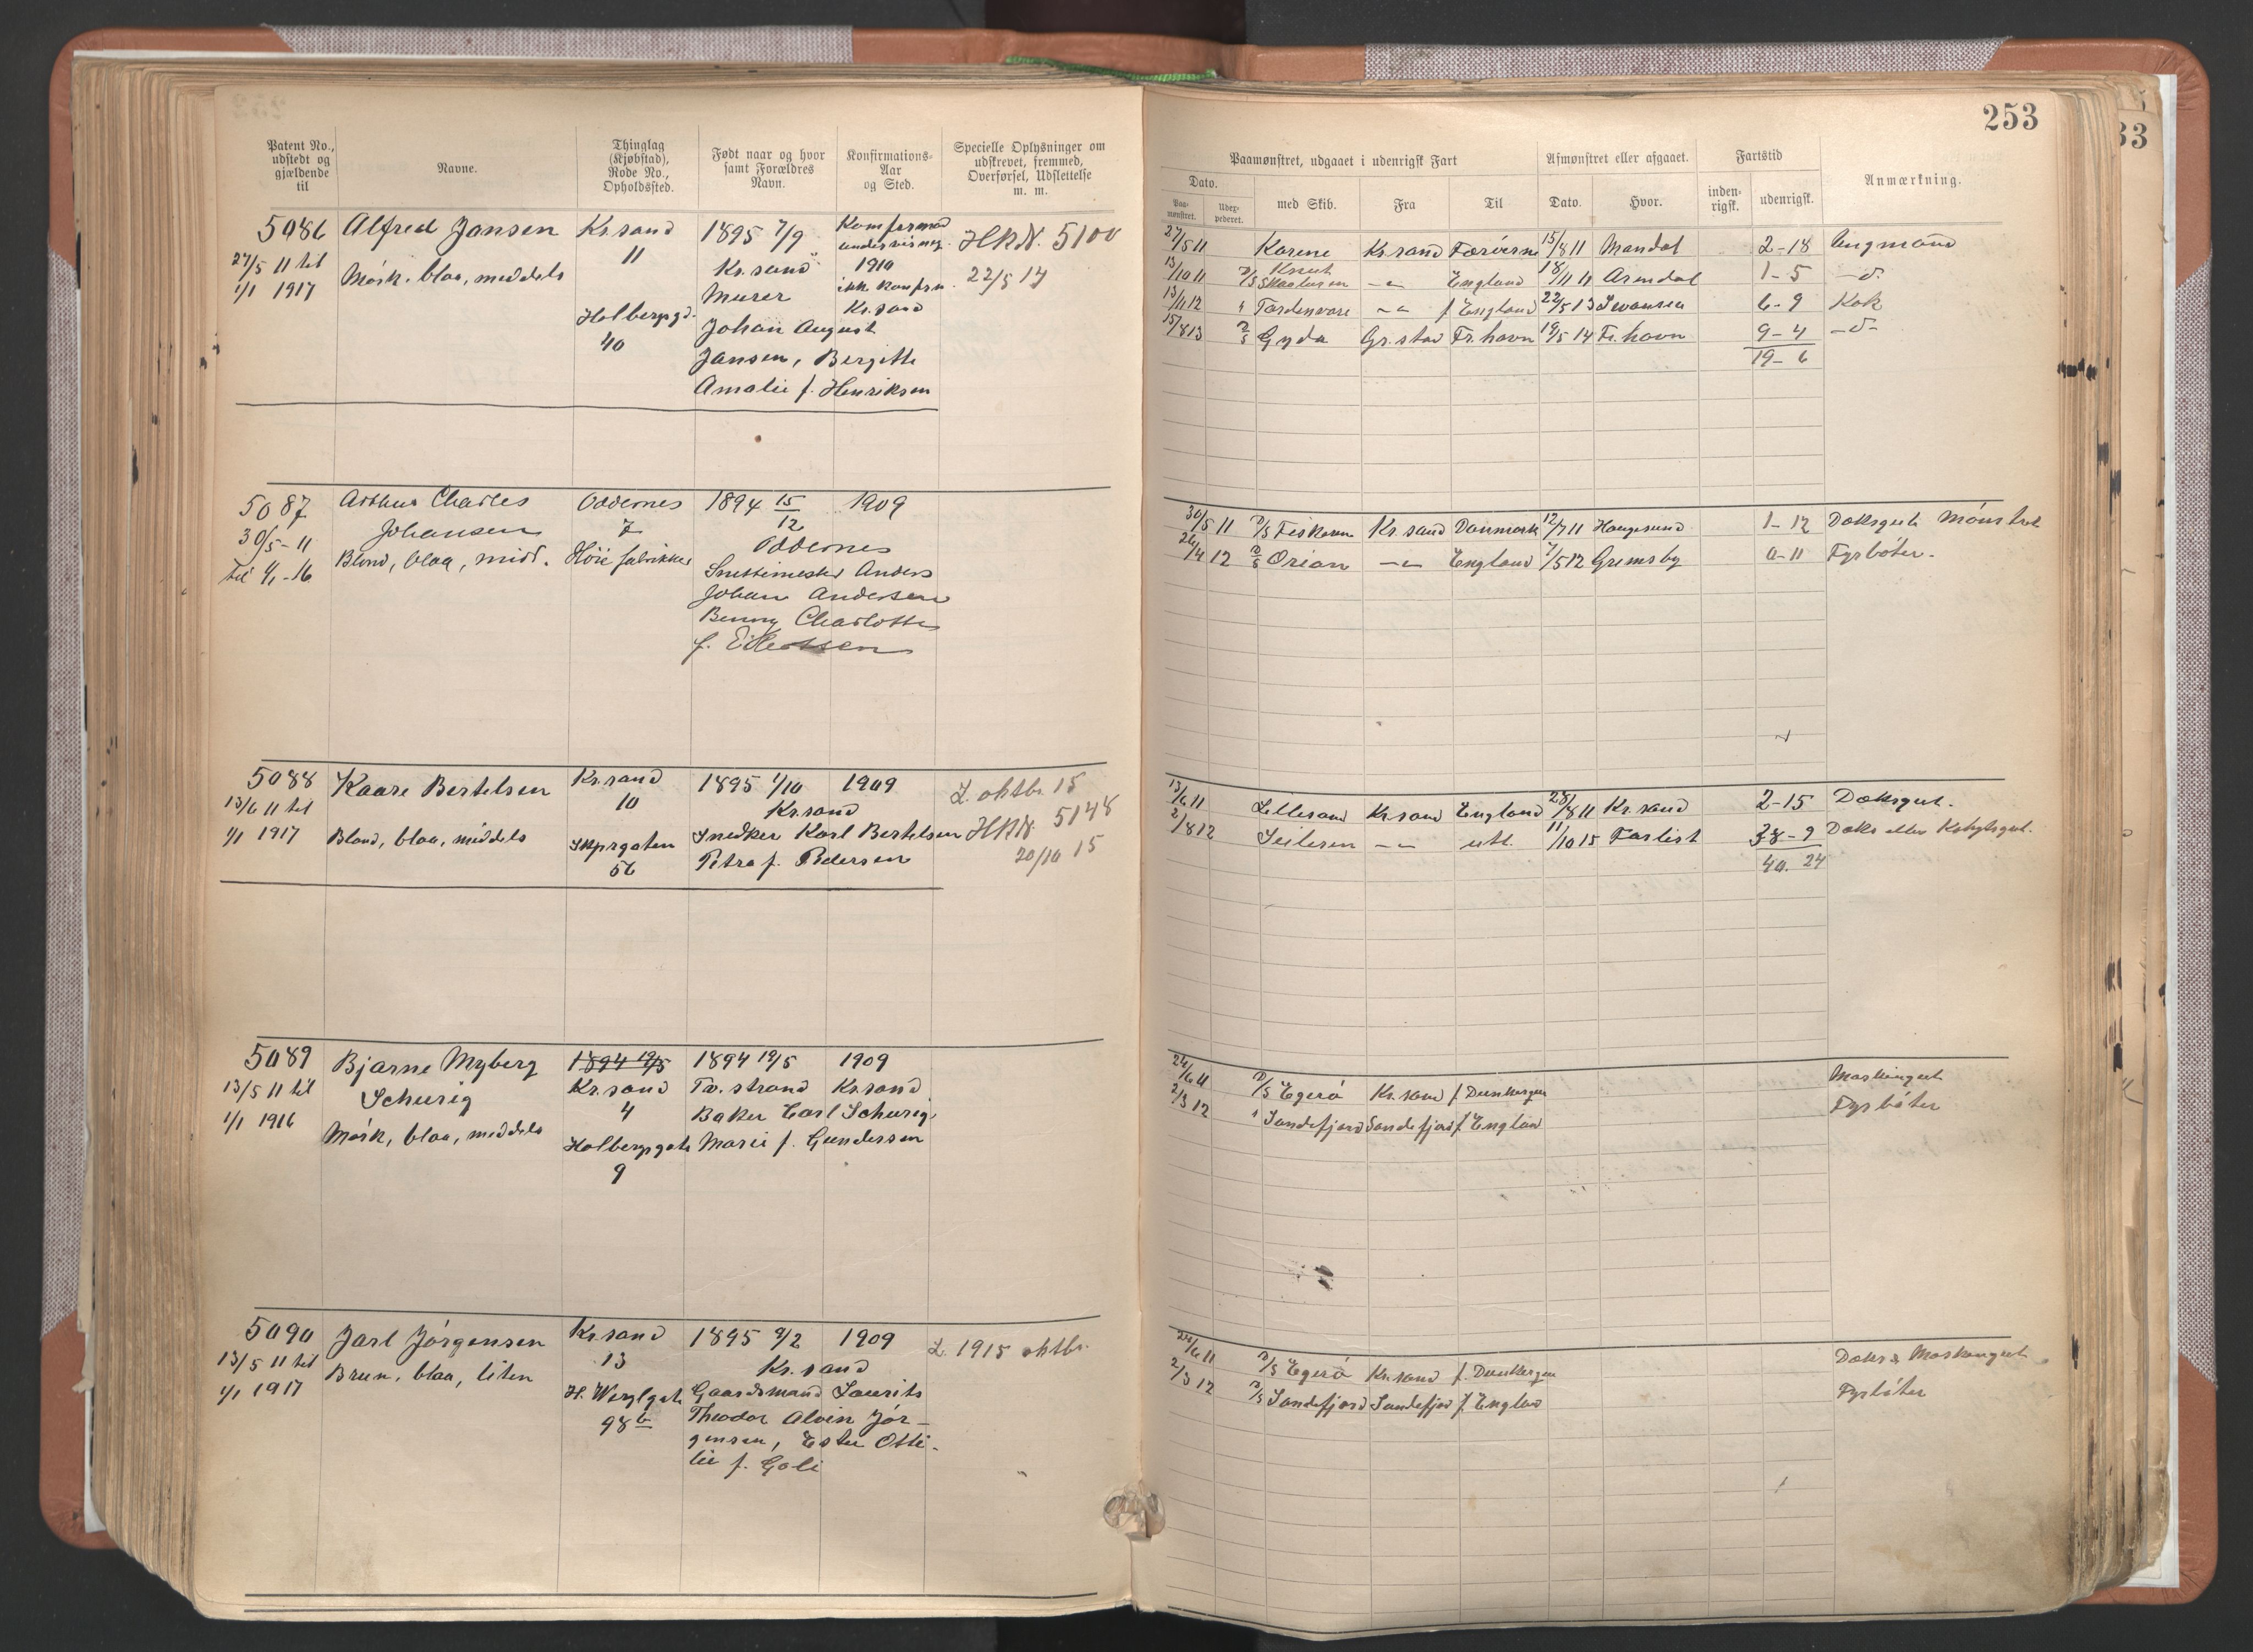 253
Patent No., udstedt og gjældende til
Navne.
Thinglag (Kjøbstad), Rode No., Opholdssted.
Født naar og hvor samt Forældres Navn.
Konfirmations-Aar og Sted.
Specielle Oplysninger om udskrevet, fremmed, Overførsel, Udslettelse m. m.
Paamønstret, udgaaet i udenrigsk Fart
Afmønstret eller afgaaet.
Fartstid
Anmærkning.
Dato.
Paa-mønstret.
Udex-pederet.
med Skib.
Fra
Til
Dato.
Hvor.
inden-rigsk.
udenrigsk.
5086 Alfred Jansen Kr.sand 1895 7/9
27/5 11 til
1/1 1917
Mørk, blaa, middels
11
Holbergsgd.
40
Kr.sand
Murer
Johan August
Jansen, Bergitte
Amalie f. Henriksen
1910
ikke konfirm.
Kr.sand
H.B.N. 5100
22/5 14
27/5 11 Karene Kr.sand Færøerne 15/8 11 Mandal 2-18 Ungmand
13/10 11 D/S Knut Skaaluren -"- England 18/11 11 Arendal 1-5 -d-
13/11 12 " -"- f England 22/5 13 Swansea 6-9 Kok
15/8 13 D/S Gyda Gr.stad Fr.havn 19/5 14 Fr.havn 9-4 -d-
19-6
5087 Arthur Charles Johansen Oddernes 1894 15/12 1909
30/5-11
til 1/1-16
Blond, blaa, midd.
7
Høie fabrikker
Oddernes
Anders
Johan Andersen
Benny Charlotte
f. Eilertsen
30/5 11 D/S Kr.sand Danmark 12/7 11 Haugesund 1-12 Dæksgut Mønstret
26/4 12 D/S Orion -"- England 7/5 12 Grimsby 0-11 Fyrbøter.
5088 Kaare Bertelsen Kr.sand 1895 1/10 1909
13/6 11 til
1/1 1917
Blond, blaa, middels
10
Skipsgaten
56
Kr.sand
Snedker Karl Bertelsen
Petra f. Pedersen
L. oktbr. 15
H.B.N. 5148
20/10 15
13/6 11 Lillesand Kr.sand England 28/8 11 Kr.sand 2-15 Dæksgut.
2/8 12 Seileren -"- utl. 11/10 15 Farlist 38-9
40. 24
5089 Bjarne Myberg Schurig 1894 19/5 1894 19/5 1909
13/5 11 til
1/1 1916
Mørk, blaa, middels
Kr.sand
4
Holbergsgate
9
Tv.strand Kr.sand
Baker Carl Schurig,
Marie f. Gundersen
24/6 11 D/S Egerø Kr.sand f. Dunkerque Maskingut
2/3 12 " Sandefjord Sandefjord f. England Fyrbøter
5090 Jarl Jørgensen Kr.sand 1895 9/2 1909 L. 1915 oktbr.
13/5 11 til
1/1 1917
Brun, blaa, liten
13
H. Wergl.gate
98 b
Kr.sand
Gaardsmand Laurits
Theodor Alvin Jør-
gensen, Ester Otti-
lie f. Goli
24/6 11 D/S Egerø Kr.sand f. Dunkerque Dæks & Maskingut
2/3 12 D/S Sandefjord Sandefjord f. England Fyrbøter